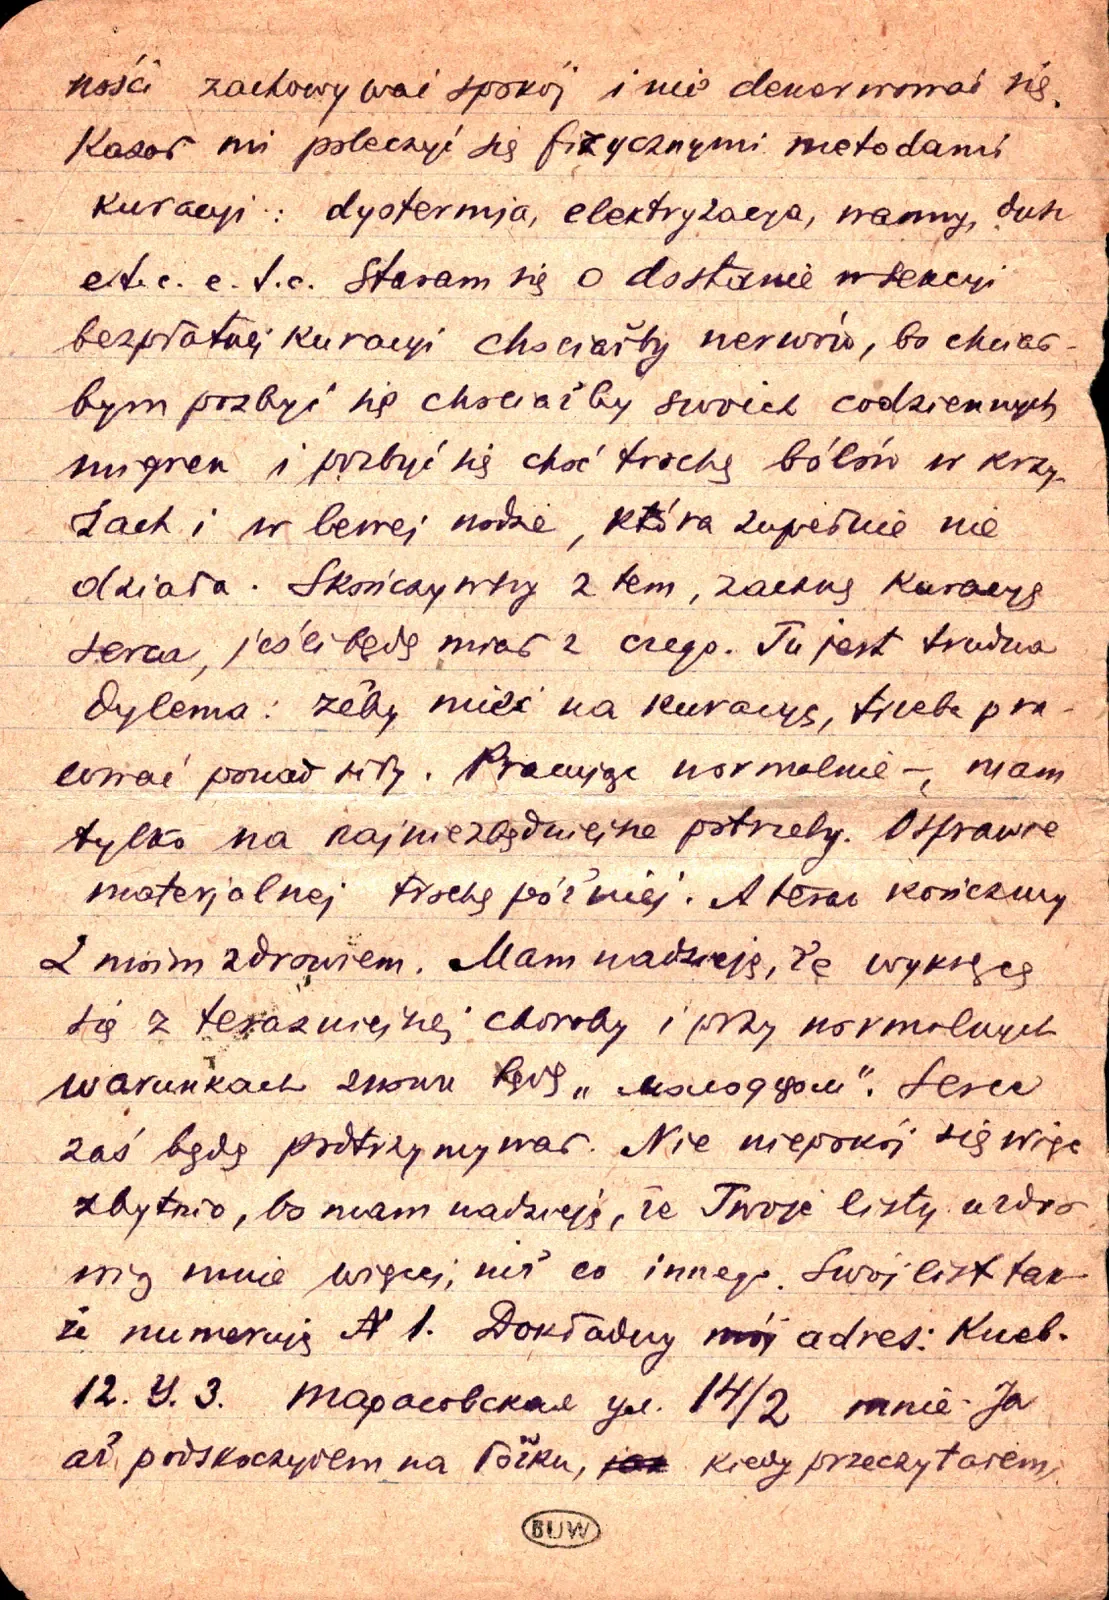 ności zachowywać spokój i nie denerwować się.
Kazał mi poleczyć się fizycznymi metodami
kuracyi: dyatermja, elektryzacya, wanny, dusz
e.t.c. e.t.c. Staram się o dostanie w sekcyi
bezpłatnej kuracyi chociażby nerwów, bo chciał-
bym pozbyć się chociażby swoich codziennych
migren i pozbyć się choć trochę bólów w krzy-
żach i w lewej nodze, która zupełnie nie
działa. Skończywszy z tem, zacznę kuracyę
serca, jeśli będę miał z czego. Tu jest trudna
dylema: żeby mieć na kuracyę, trzeba pra-
cować ponad siły. Pracując normalnie –, mam
tylko na najniezbędniejsze potrzeby. O sprawie
materjalnej trochę później. A teraz kończmy
z moim zdrowiem. Mam nadzieję, że wykręcę
się z terazniejszej choroby i przy normalnych
warunkach znowu będę „молодцом“. Serce
zaś będę podtrzymywał. Nie niepokój się więc
zbytnio, bo mam nadzieję, że Twoje listy uzdro
wią mnie więcej, niż co innego. Swój list tak
że numeruję N 1. Dokładny mój adres: Киев.
12. У. 3. Тарасовская ул. 14/2 mnie. Ja
aż podskoczyłem na łóżku, kiedy przeczytałem,
BUW